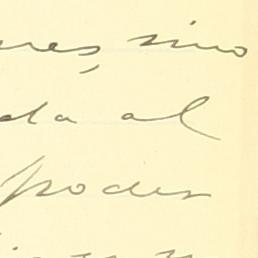 res, sino
da al
poder